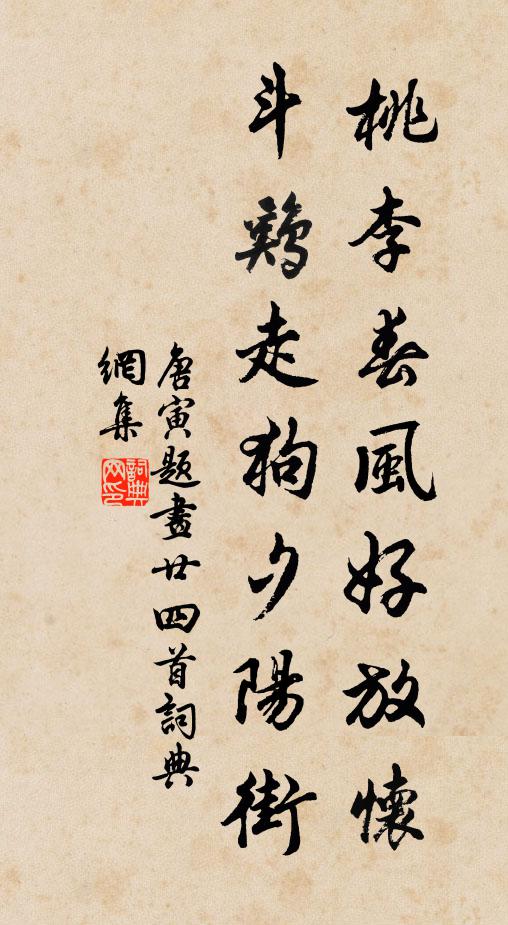 桃李春風好放懷
斗鷄走狗夕陽街
唐寅題畫廿四首詞典
網集
詞典網印